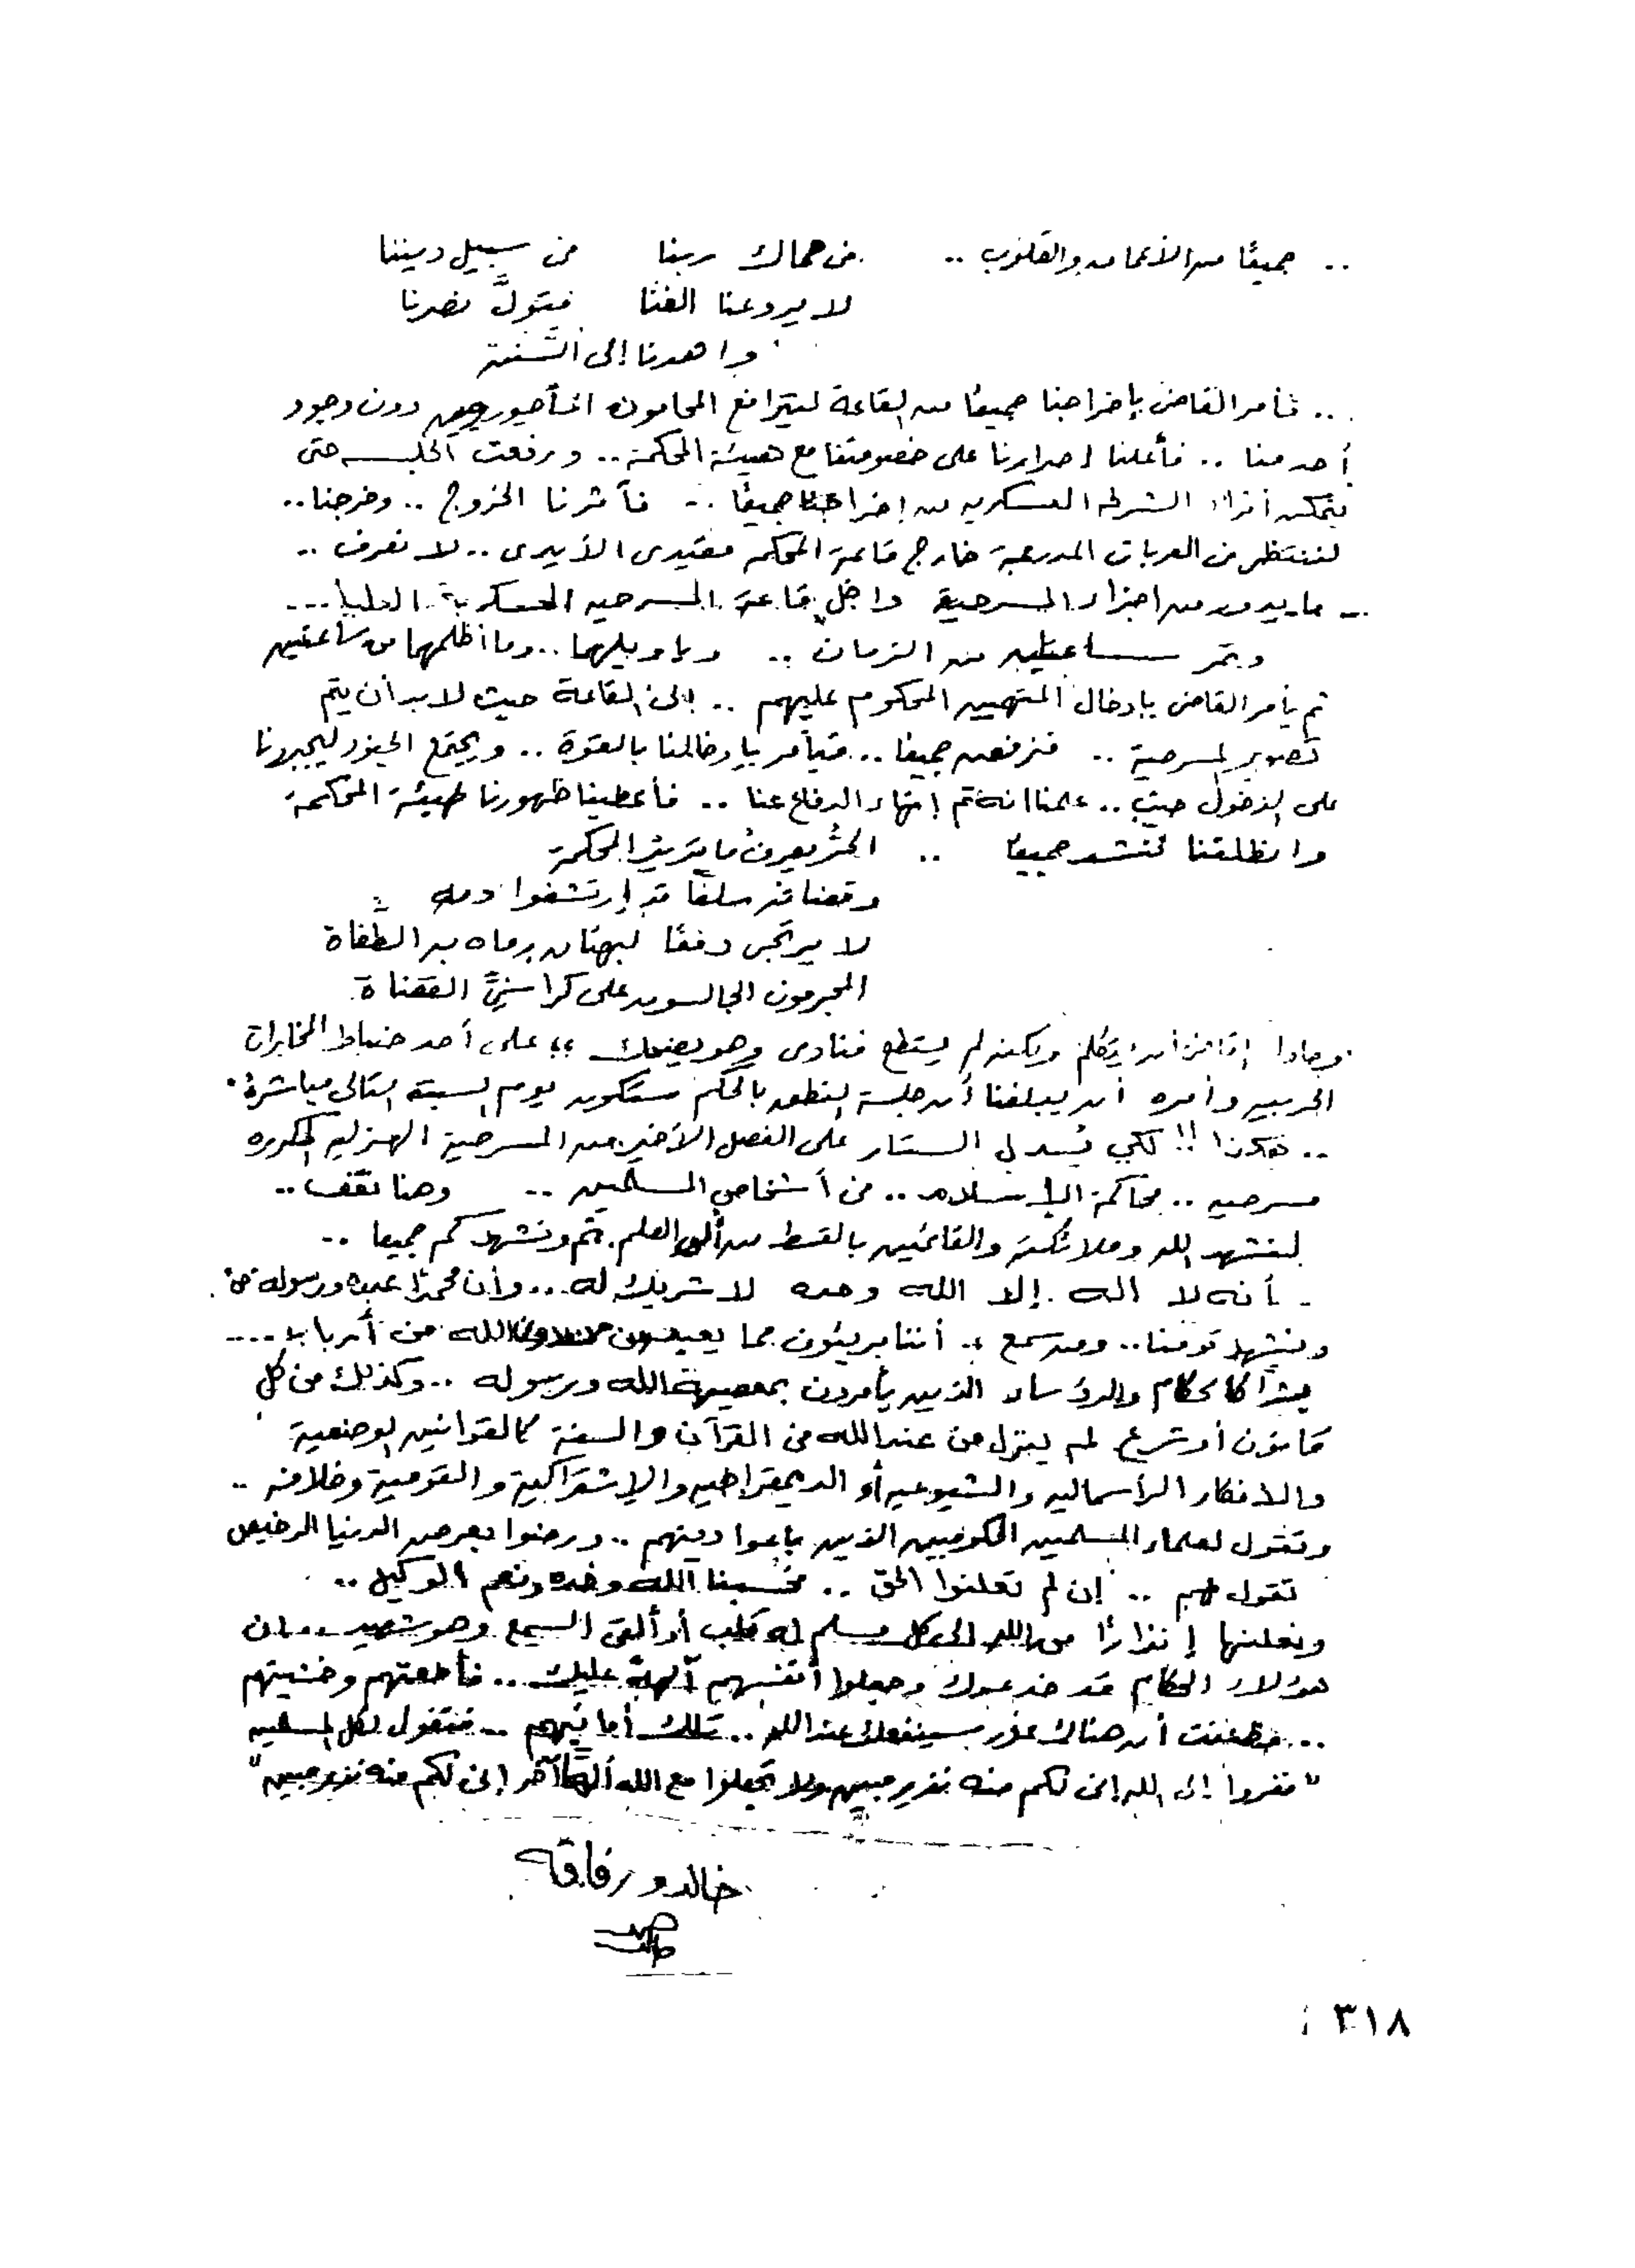 .. جميعًا من الأعماق والقلوب .. في حماك ربنا في سبيل ديننا
لا يروعنا الفنا فتولَّ نصرنا
واهدنا إلى السُّنة
.. فأمر القاضى بإخراجنا جميعًا من القاعة ليترافع المحامون المأجورين دون وجود
أحد منا .. فأعلنا إصرارنا على خصومتنا مع هيئة المحكمة .. ورفعت الجلسة حتى
يتمكن أفراد الشرطه العسكريه من إخراجنا جميعًا .. فآثرنا الخروج .. وخرجنا ..
لننتظر فى العربات المدرعة خارج قاعة المحكمه مقيدى الأيدى .. لا نعرف ..
.. ما يدور من اجزاء المسرحية داخل قاعة المسرحيه العسكرية العليا ...
وتمر ساعتين من الزمان .. ويا ويلهما .. وما أظلمهما من ساعتين
ثم يأمر القاضى بإدخال المتهمين المحكوم عليهم .. إلى القاعة حيث لابد أن يتم
تصوير المسرحية .. فنرفض جميعًا .. فيأمر بإدخالنا بالقوة .. ويجتمع الجنود ليجبرونا
على الدخول حيث .. علمنا انه تم إنتهاء الدفاع عنا .. فأعطينا ظهورنا لهيئة المحكمة
وانطلقنا ننشد جميعًا ..
وقضاته سلفًا قد إرتشفوا دمه
لا يرتجى دفعًا لبهتان رماه به الطغاة
المجرمون الجالسون على كراسيِّ القضاة
وحاول القاضى أن يتكلم ولكنه لم يستطع فنادى وهو يضحك ؛؛ على أحد ضباط المخابرات
الحربيه وأمره أن يبلغنا أن جلسة النطق بالحكم ستكون يوم السبت التالى مباشرة .
.. هكذا !! لكي يُسدل الستار على الفصل الأخير من المسرحية الهزليه المكرره
مسرحيه .. محاكمة الإسلام .. فى أشخاص المسلمين .. وهنا نقف ..
لنشهد الله وملائكته والقائمين بالقسط من أولى العلم . ثم ونشهدكم جميعا ..
- بأنه لا اله إلا الله وحده لا شريك له ... وأن محمدًا عبده ورسوله
ونشهد قومنا .. ومن سمع .. أننا بريئون مما يعبدون من دون الله من أربابٍ ....
بشرًا كالحكام والرؤساء الذين يأمرون بمعصية الله ورسوله .. وكذلك من كل
قانون أو شرع لم ينزل من عند الله فى القرآن والسنة كالقوانين الوضعية
والافكار الرأسماليه والشيوعيه أو الديمقراطيه والإشتراكية والقومية وخلافه ..
ونقول لعلماء المسلمين الحكوميين الذين باعوا دينهم .. ورضوا بعرض الدنيا الرخيص
نقول لهم .. إن لم تعلنوا الحق .. فحسبنا الله وحده ونعم الوكيل ..
ونعلنها إنذارًا من الله الى كل مسلم له قلب أو ألقى السمع وهو شهيد .. بان
هؤلاء الحكام قد خدعوك وجعلوا أنفسهم آلهة عليك .. فأطعتهم وخشيتهم
.. فظننت أن هناك عذر سينفعك عند الله .. تلك أمانيهم .. فنقول لكل المسلمين
" ففروا إلى الله إنى لكم منه نذير مبين ولا تجعلوا مع الله ألهًا آخر إنى لكم منه نذير مبين "
خالد ورفاقه
٣١٨